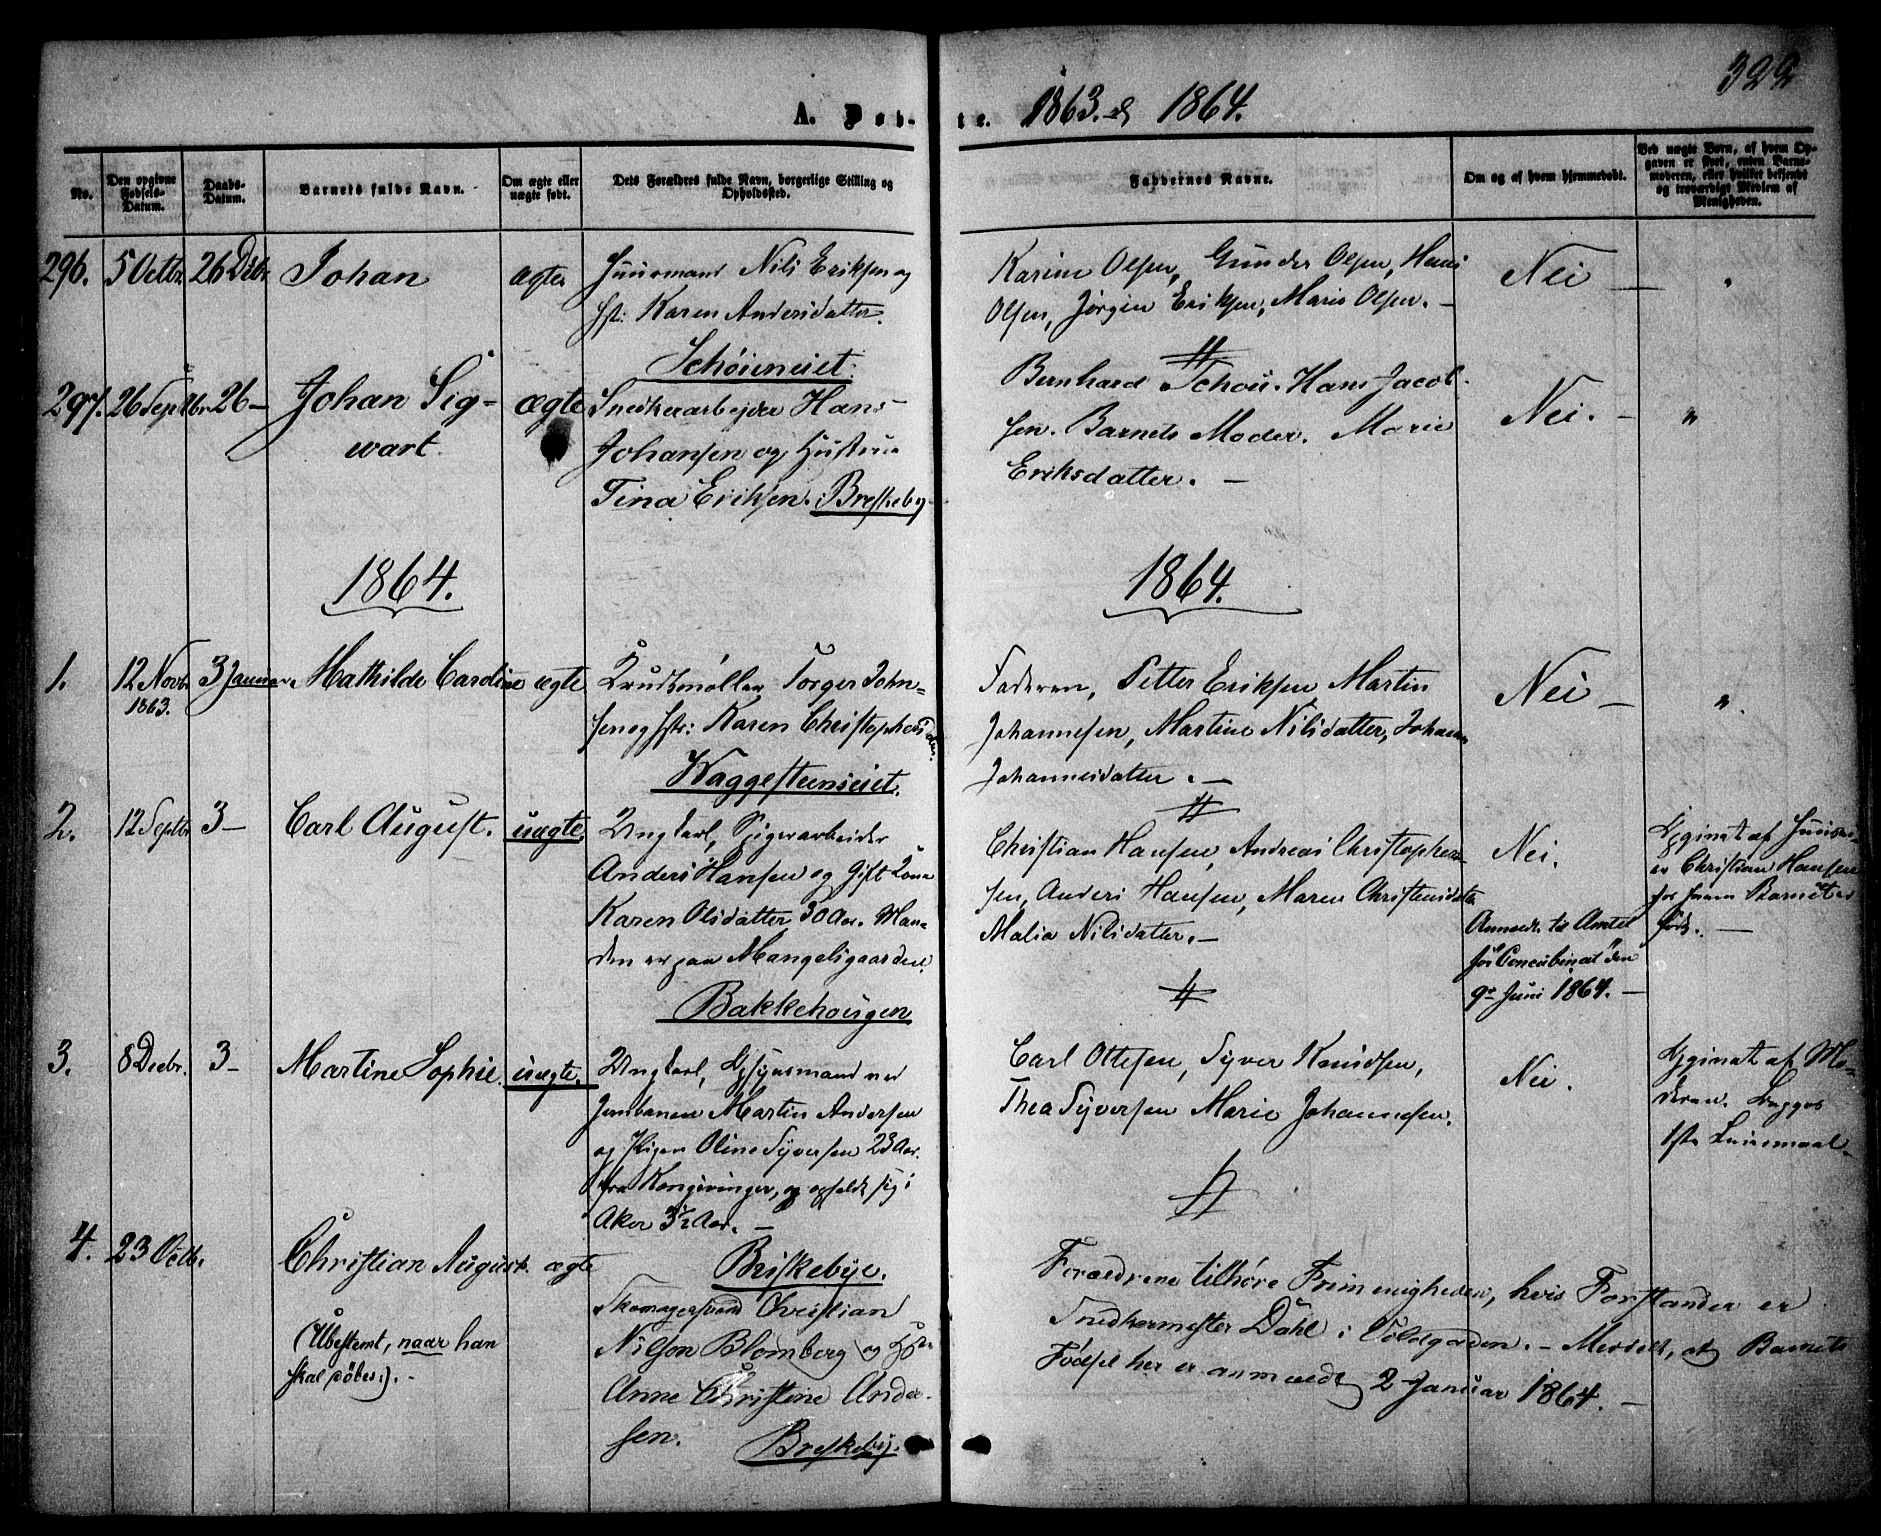 322
A. Døb- te. 1863. & 1864.
No.
Den opgivne Fødsels-Datum.
Daabs-Datum.
Barnets fulde Navn.
Om ægte eller uægte født.
Dets Forældres fulde Navn, borgerlige Stilling og Opholdssted.
Faddernes Navne.
Om og af hvem hjemmedøbt.
Ved uægte Børn, af hvem Opgaven er skeet, enten Barnemoderen, eller hvilket bekjendt og troværdigt Medlem af Menigheden.
296. 5 Octbr. 26 Decbr. Johan ægte
Huusmand Nils Eriksen og
Hst: Karen Andersdatter.
Schøieneiet.
Karine Olsen, Gunder Olsen, Hans
Olsen, Jørgen Eriksen, Maria Olsen. —
Nei — "
297. 26 Septbr. 26 — Johan Sig-
wart.
ægte
Snedkerarbejder Hans
Johansen og Hustrue
Tina Eriksen. Breskeby
Bernhard Schou. Hans Jacob-
sen. Barnets Moder. Marie
Eriksdatter. —
Nei. — "
1864.
1864.
1. 12 Novbr. 1863. 3 Januar. Mathilde Caroline ægte
Krudtmøller Torger John-
sen og Hstr: Karen Christophersdatter.
Waggesteenseiet.
Faderen, Petter Eriksen Martin
Johannesen, Martine Nilsdatter, Johanne
Johannesdatter. —
Nei — "
2. 12 Septbr. 3 — Carl August. uægte.
Ungkarl, Spigerarbeider
Anders Hansen og Gift Kone
Karen Olsdatter 30 Aar. Man-
den er paa Mangelsgaarden.
Bakkehougen
Christian Hansen, Andreas Christopher-
sen, Anders Hansen, Maren Christensdatter
Malia Nilsdatter. —
Nei.
Anmeldt til Amtet
for Concubinat den
9de Juni 1864. —
Opgivet af Huusei-
er Christian Hansen
for hvem Barnet er
født. —
3. 8 Decbr. 3 — Martine Sophie. uægte.
Ungkarl, Opsynsmand ved
Jernbanen Martin Andersen
og Pigen Oline Syversen 23 Aar.
fra Kongsvinger, og opholdt sig i
Aker 3½ Aar. —
Briskebye.
Carl Ottesen, Syver Knudsen,
Thea Syversen Marie Johannesen.
Nei.
Opgivet af Mo-
deren. Begges
1ste Leiermaal —
4. 23 Octb. Christian August. ægte
(Ubestemt, naar han
skal døbes:). —
Skomagersvend Christian
Nilson Blomberg og Hustr:
Anne Christine Ander-
sen. Breskeby.
Forældrene tilhøre Frimenigheden, hvis Forstander er
Snedkermester Dahl i Voldgaden. — Meddelt, at Barnets
Fødsel her er anmeldt 2 Januar 1864. —